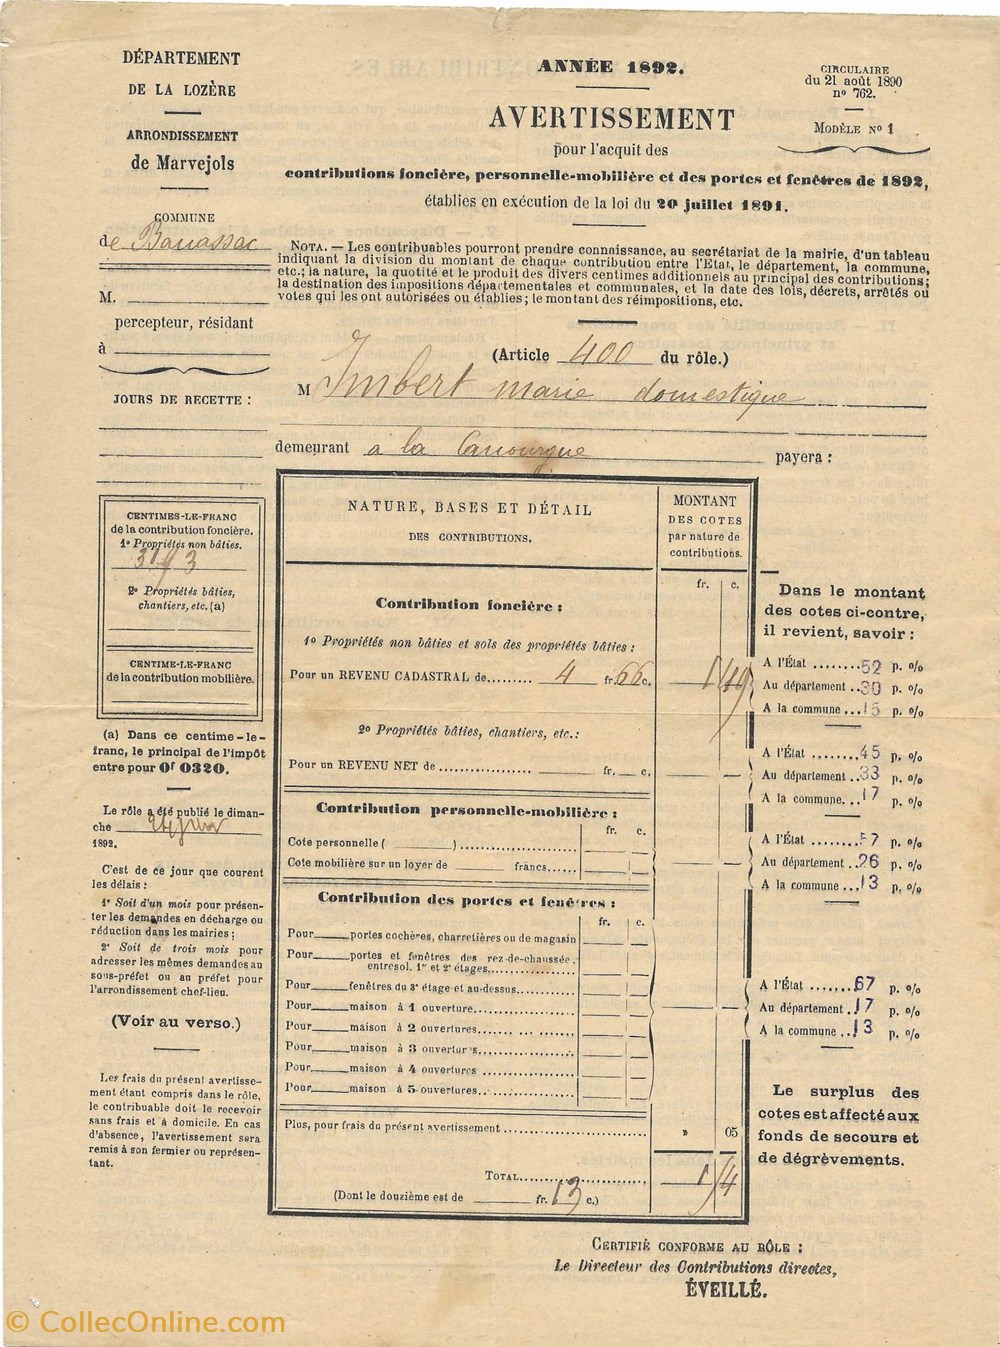 DÉPARTEMENT
DE LA LOZÈRE
ARRONDISSEMENT
de Marvejols
COMMUNE
de Banassac
M.
percepteur, résidant
à
JOURS DE RECETTE :
CENTIMES-LE-FRANC
de la contribution foncière.
1º Propriétés non bâties.
2º Propriétés bâties,
chantiers, etc. (a)
CENTIME-LE-FRANC
de la contribution mobilière.
(a) Dans ce centime-le-
franc, le principal de l'impôt
entre pour 0f 0320.
Le rôle a été publié le diman-
che
1892.
C'est de ce jour que courent
les délais :
1º Soit d'un mois pour présen-
ter les demandes en décharge ou
réduction dans les mairies ;
2º Soit de trois mois pour
adresser les mêmes demandes au
sous-préfet ou au préfet pour
l'arrondissement chef-lieu.
(Voir au verso.)
Les frais du présent avertisse-
ment étant compris dans le rôle,
le contribuable doit le recevoir
sans frais et à domicile. En cas
d'absence, l'avertissement sera
remis à son fermier ou représen-
tant.
ANNÉE 1892.
AVERTISSEMENT
pour l'acquit des
contributions foncière, personnelle-mobilière et des portes et fenêtres de 1892,
établies en exécution de la loi du 20 juillet 1891.
CIRCULAIRE
du 21 août 1890
nº 762.
MODÈLE Nº 1
NOTA. — Les contribuables pourront prendre connaissance, au secrétariat de la mairie, d'un tableau
indiquant la division du montant de chaque contribution entre l'État, le département, la commune,
etc.; la nature, la quotité et le produit des divers centimes additionnels au principal des contributions;
la destination des impositions départementales et communales, et la date des lois, décrets, arrêtés ou
votes qui les ont autorisées ou établies; le montant des réimpositions, etc.
(Article 400 du rôle.)
M Imbert marie domestique
demeurant a la Canourgue payera :
NATURE, BASES ET DÉTAIL
DES CONTRIBUTIONS.
MONTANT
DES COTES
par nature de
contributions.
fr. c.
Contribution foncière :
1º Propriétés non bâties et sols des propriétés bâties :
Pour un REVENU CADASTRAL de......... 4 fr. 66 c. 1 49
2º Propriétés bâties, chantiers, etc.:
Pour un REVENU NET de .................. fr. c.
Contribution personnelle-mobilière :
fr. c.
Cote personnelle ( )
Cote mobilière sur un loyer de francs......
Contribution des portes et fenêtres :
fr. c.
Pour portes cochères, charretières ou de magasin
Pour portes et fenêtres des rez-de-chaussée,
entresol, 1er et 2e étages
Pour fenêtres du 3e étage et au-dessus
Pour maison à 1 ouverture
Pour maison à 2 ouvertures
Pour maison à 3 ouvertures
Pour maison à 4 ouvertures
Pour maison à 5 ouvertures
Plus, pour frais du présent avertissement » 05
TOTAL
(Dont le douzième est de fr. 13 c.)
Dans le montant
des cotes ci-contre,
il revient, savoir :
A l'État ........ 52 p. %
Au département .. 30 p. %
A la commune ... 15 p. %
A l'État ........ 45 p. %
Au département .. 33 p. %
A la commune... 17 p. %
A l'État ........ 57 p. %
Au département .. 26 p. %
A la commune ... 13 p. %
A l'État ....... 67 p. %
Au département . 17 p. %
A la commune ... 13 p. %
Le surplus des
cotes est affecté aux
fonds de secours et
de dégrèvements.
CERTIFIÉ CONFORME AU RÔLE :
Le Directeur des Contributions directes,
ÉVEILLÉ.
© CollecOnline.com